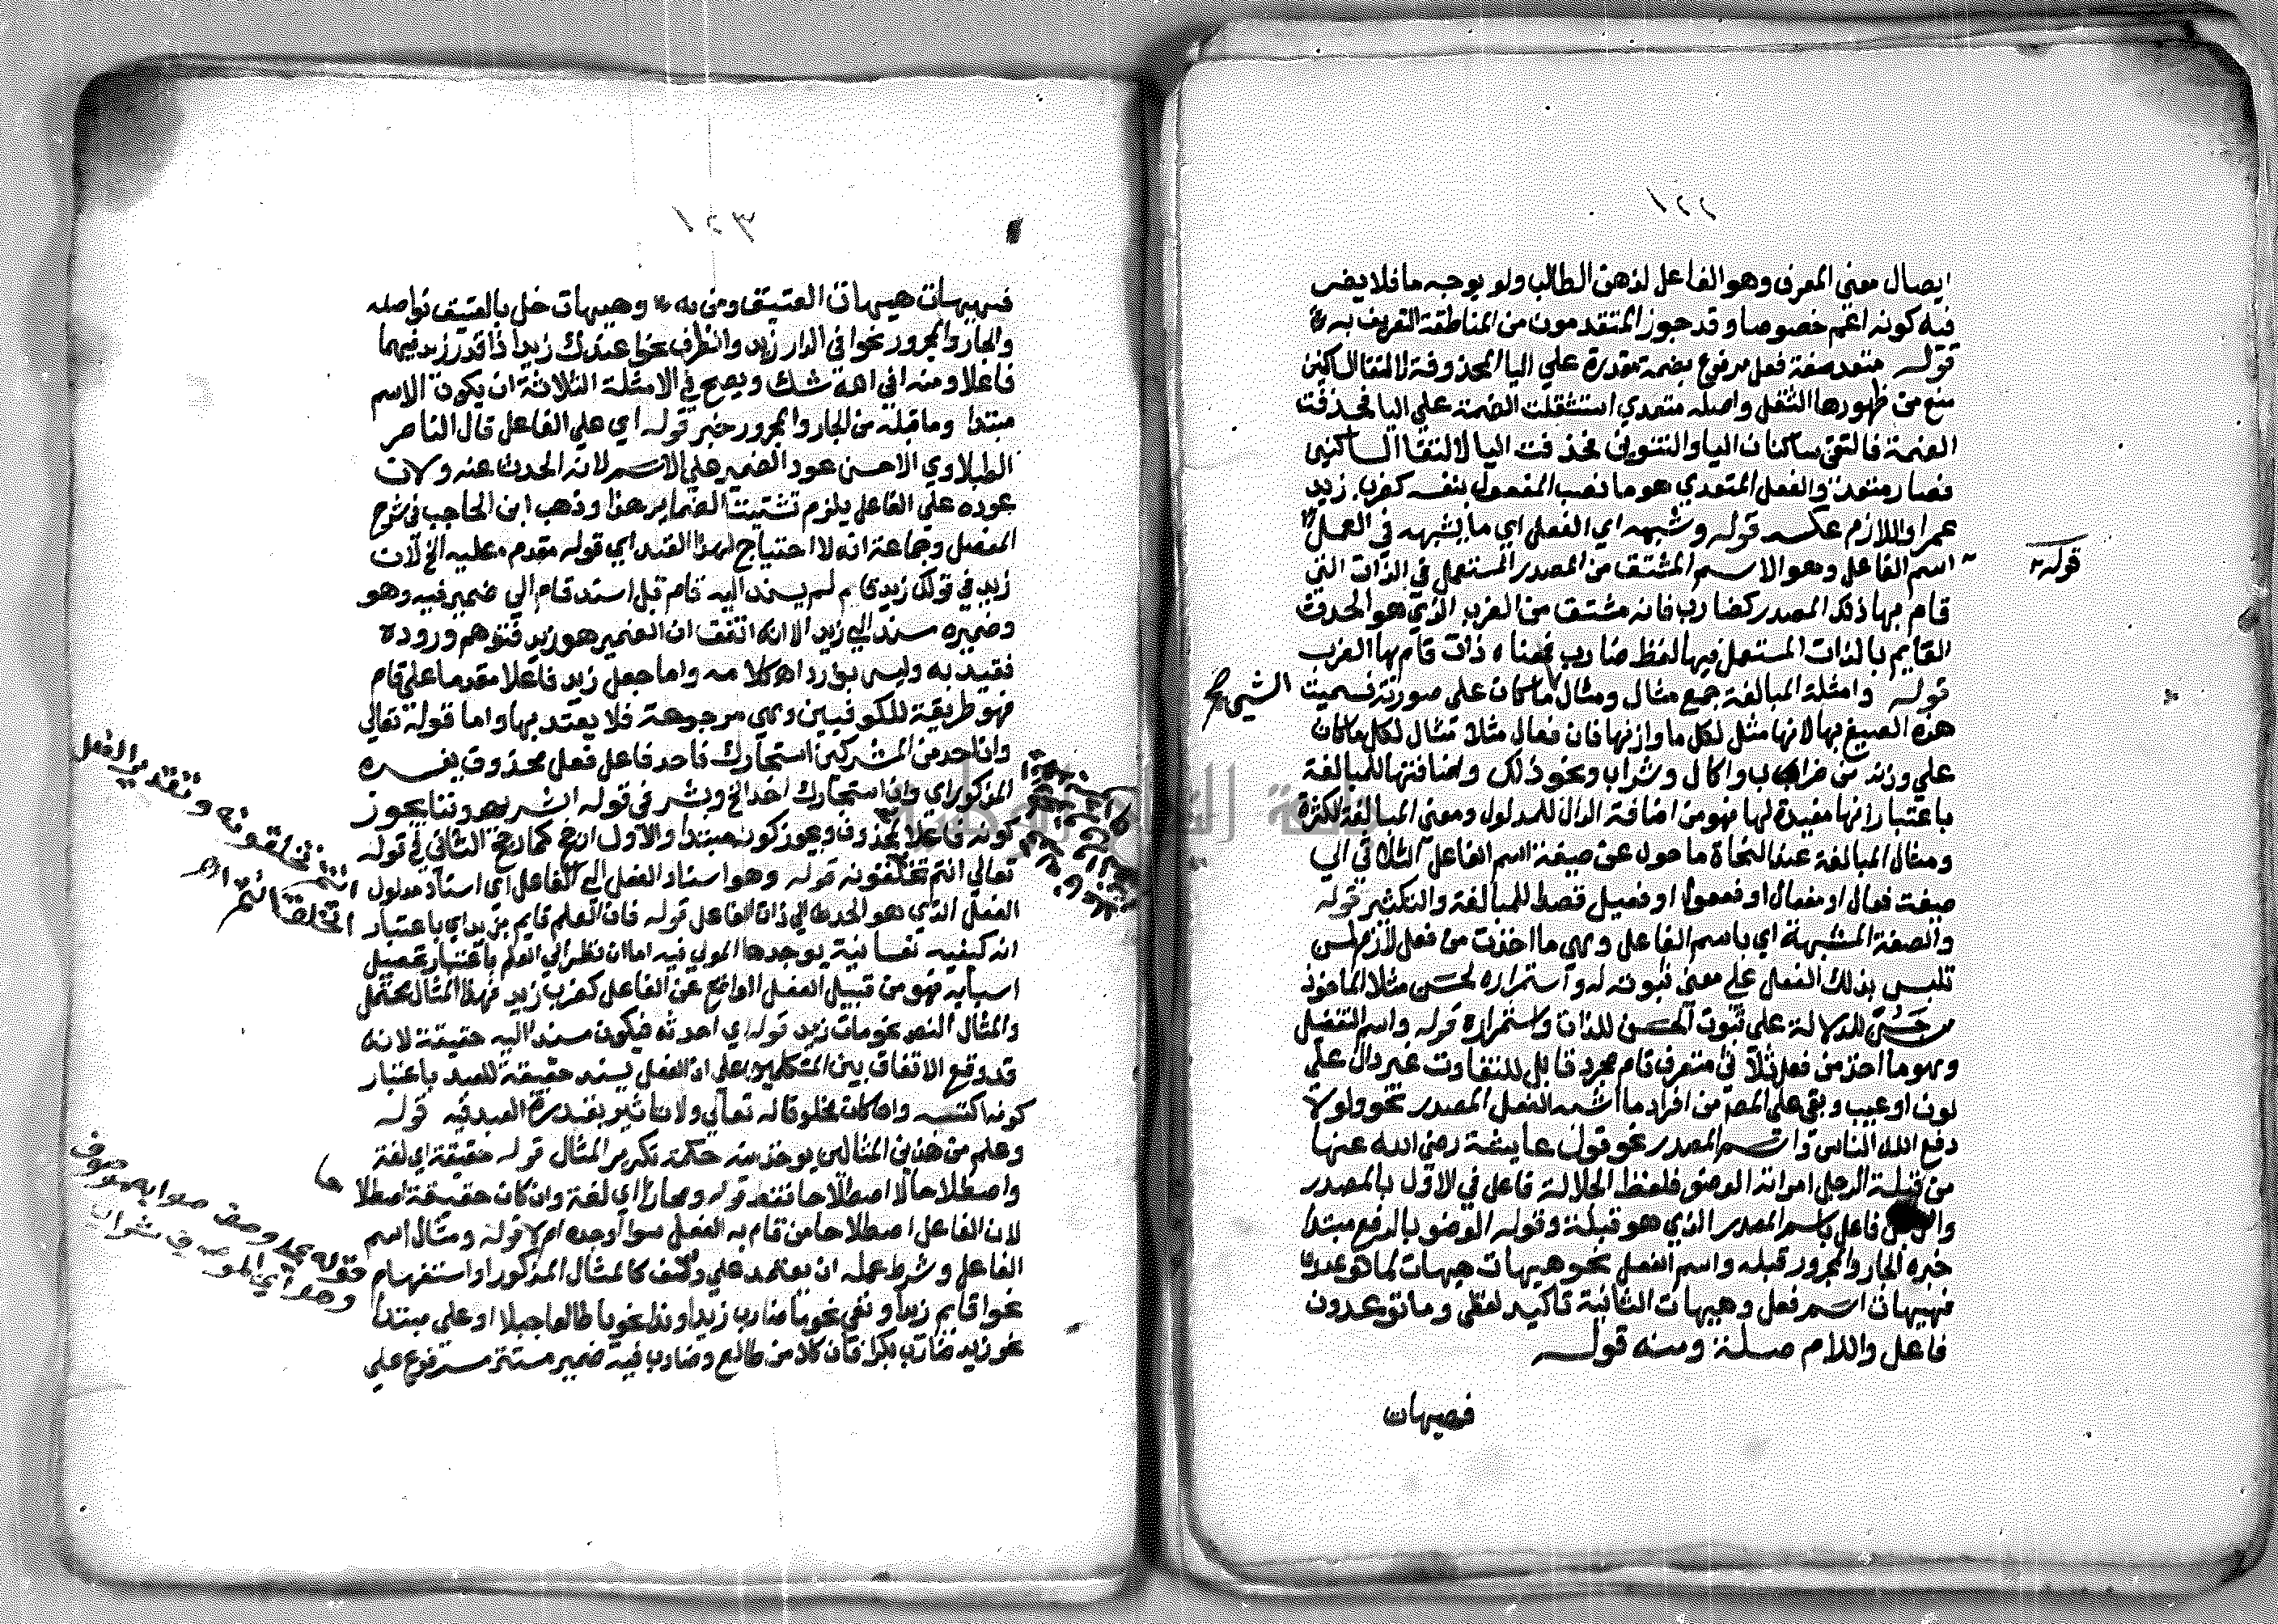 ١٢٢
ايصال معني المعرف وهو الفاعل لذهن الطالب ولو بوجه ما فلا يضر
فيه كونه اعم خصوصا وقد جوز المتقدمون من المناطقة التعريف به
قوله متعد صفة فعل مرفوع بضمة مقدرة علي اليا المحذوفة لالتقا الساكنين
منع من ظهورها الثقل واصله متعدي استثقلت الضمة علي اليا فحذفت
الضمة فالتقي ساكنان اليا والتنوين فحذفت اليا لالتقا الساكنين
فصار متعد والفعل المتعدي هو ما نصب المفعول بنفسه كضرب زيد
عمرا واللازم عكسه قوله وشبهه اي الفعل اي ما يشبهه في العمل
قوله
اسم الفاعل وهو الاسم المشتق من المصدر المستعمل في الذات التي
قام بها ذلك المصدر كضارب فانه مشتق من الضرب الذي هو الحدث
القايم بالذات المستعمل فيها لفظ ضارب فمعناه ذات قام بها الضرب
قوله وامثلة المبالغة جمع مثال ومثال ما كان علي صورته فسميت
الشي
هذه الصيغ بها لانها مثل لكل ما وازنها فان فعال مثلا مثال لكل ما كان
علي وزنه من ضراب واكال وشراب ونحو ذلك واضافتها للمبالغة
باعتبار انها مفيدة لها فهو من اضافة الدال للمدلول ومعني المبالغة الكثرة
ومثال المبالغة عند النحاة ما حول عن صيغة اسم الفاعل الثلاثي الي
صيغت فعال او مفعال او فعول او فعيل قصد للمبالغة والتكثير قوله
والصفة المشبهة اي باسم الفاعل وهي ما اخذت من فعل لازم لمن
تلبس بذلك الفعل علي معني ثبوته له واستمراره لحسن مثلا الماخوذ
من حسن للدلالة علي ثبوت الحسن للذات واستمراره قوله واسم التفضيل
وهو ما اخذ من فعل ثلاثي متصرف تام مجرد قابل للتفاوت غير دال علي
لون او عيب وبقي علي المص من افراد ما اشبه الفعل المصدر نحو ولولا
دفع الله الناس واسم المصدر نحو قول عايشة رضي الله عنها
من قبلة الرجل امراته الوضو فلفظ الجلالة فاعل في الاول بالمصدر
والرجل فاعل باسم المصدر الذي هو قبلة وقوله الوضو بالرفع مبتدا
خبره الجار والمجرور قبله واسم الفعل نحو هيهات هيهات لما توعدون
فهيهات اسم فعل وهيهات الثانية تاكيد لفظي وما توعدون
فاعل واللام صلة ومنه قوله
فهيهات
١٢٣
فهيهات هيهات العتيق ومن به وهيهات خل بالعتيق نواصله
والجار والمجرور نحو افي الدار زيد والظرف نحو اعندك زيد اذا قدر زيد فيهما
فاعلا ومنه افي الله شك ويصح في الامثلة الثلاثة ان يكون الاسم
مبتدا وما قبله من الجار والمجرور خبر قوله اي علي الفاعل قال الناصر
الطبلاوي الاحسن عود الضمير علي الاسم لانه المحدث عنه ولان
عوده علي الفاعل يلزم تشتيت الضماير هذا وذهب ابن الحاجب في شرح
المفصل وجماعة انه لا احتياج لهذا القيد اي قوله مقدم عليه الخ لان
زيد في قولك زيد قام لم يسند اليه قام قبل اسند قام الي ضمير فيه وهو
وضميره مسند الي زيد الا انه اتفق ان الضمير هو زيد فتوهم وروده
فقيد به وليس بوارد اه كلامه واما جعل زيد فاعلا مقدما علي قام
فهو طريقة للكوفيين وهي مرجوحة فلا يعتد بها واما قوله تعالي
وان احد من المشركين استجارك فاحد فاعل فعل محذوف يفسره
المذكور اي وان استجارك احد الخ وبشر في قوله ابشر يهدوننا يجوز
كونه فاعلا لمحذوف ويجوز كونه مبتدا والاول ارجح كما رجح الثاني في قوله
تعالي اانتم تخلقونه قوله وهو اسناد الفعل الي الفاعل اي اسناد مدلول
الفعل الذي هو الحدث الي ذات الفاعل قوله فان العلم قايم بزيد اي باعتبار
انه كيفية نفسانية يوجدها المولي فيه اما ان نظر الي العلم باعتبار تحصيل
اسبابه فهو من قبيل الفعل الواقع عن الفاعل كضرب زيد فهذا المثال محتمل
والمثال النص نحو مات زيد قوله اي احدثه فيكون مسند اليه حقيقة لانه
قد وقع الاتفاق بين المتكلمين علي ان الفعل يسند حقيقة للعبد باعتبار
كونه اكتسبه وان كان مخلوقا له تعالي ولا تاثير بقدرة العبد فيه قوله
وعلم من هذين المثالين يوخذ منه حكمة تكرير المثال قوله حقيقة اي لغة
واصطلاحا لا اصطلاحا فقط قوله ومجازا اي لغة وان كان حقيقة اصطلا
حا
لان الفاعل اصطلاحا من قام به الفعل سوا اوجده ام لا قوله ومثال اسم
الفاعل وشرط عمله ان يعتمد علي وصف كالمثال المذكور او استفهام
نحو اقايم زيد او نفي نحو ما ضارب زيد او ندا نحو يا طالعا جبلا او علي مبتدا
نحو زيد ضارب بكرا فان كلا من طالع وضارب فيه ضمير مستتر مرفوع علي